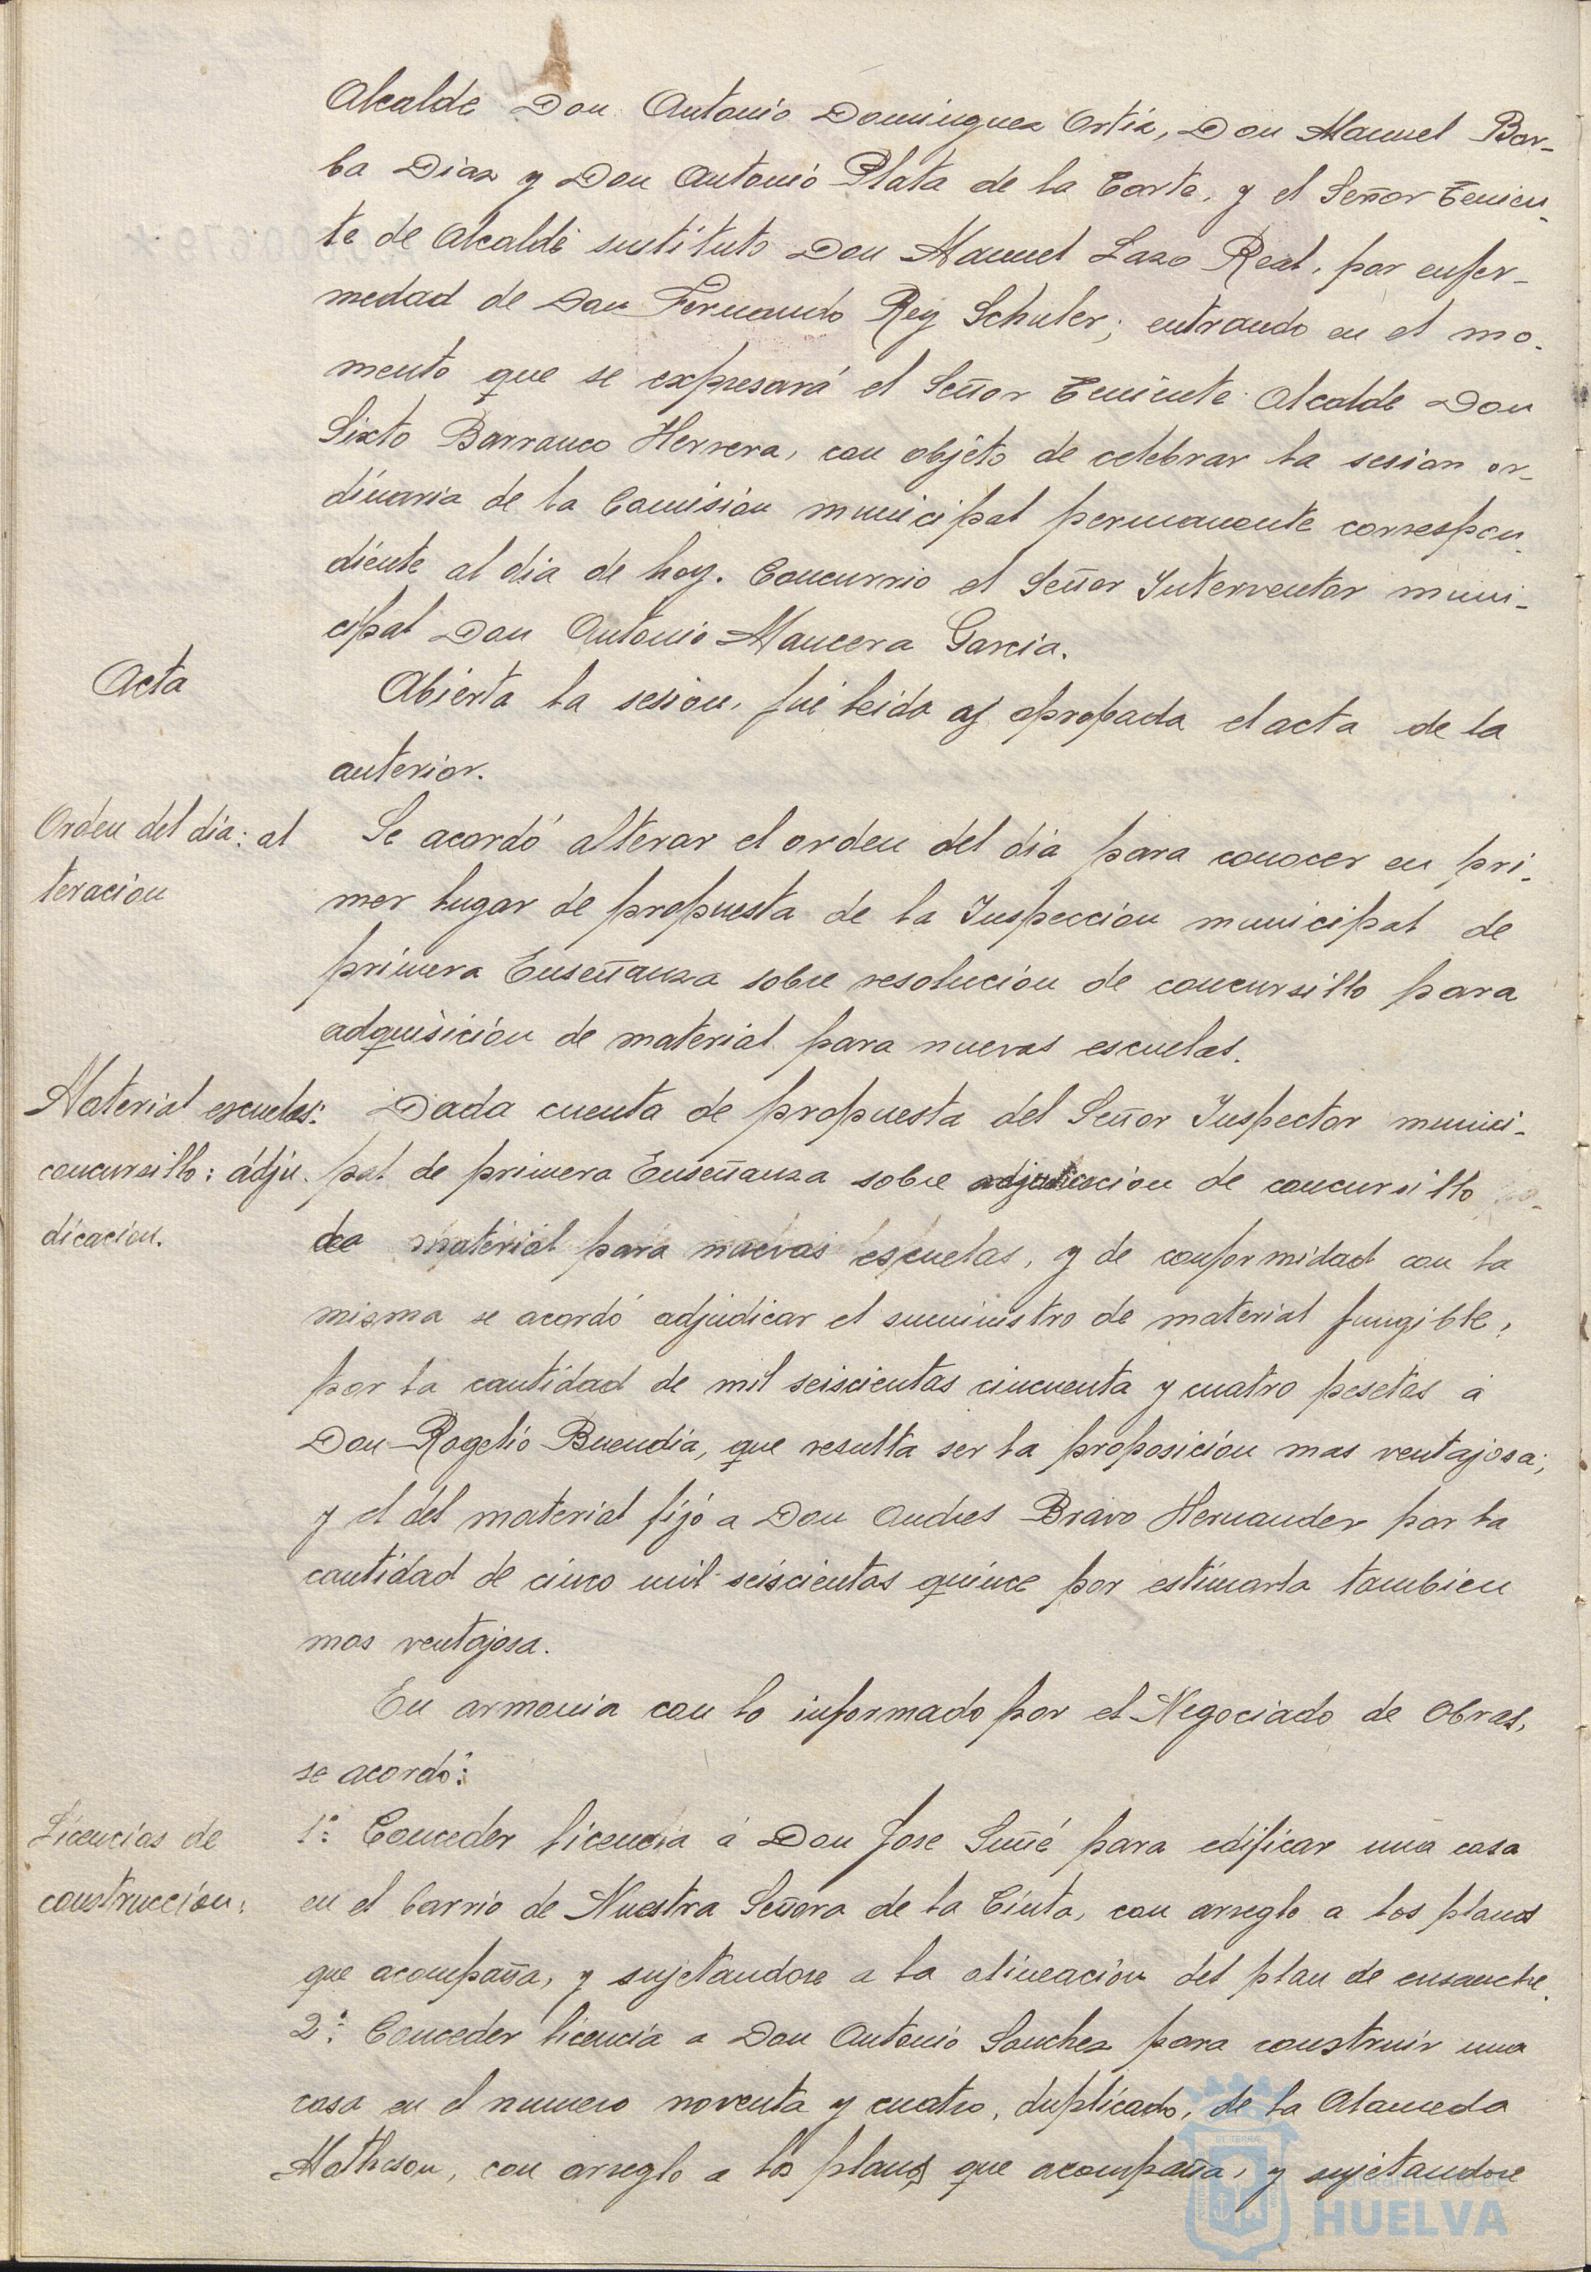 Alcalde Don Antonio Dominguez Ortiz, Don Manuel Bar-
ba Diaz y Don Antonio Plata de la Corte, y el Señor Tenien-
te de Alcalde sustituto Don Manuel Lazo Real, por enfer-
medad de Don Fernando Rey Schuler; entrando en el mo-
mento que se expresará el Señor Teniente Alcalde Don
Sixto Barranco Herrera, con objeto de celebrar la sesion or-
dinaria de la Comisión municipal permanente correspon-
diente al dia de hoy. Concurrio el Señor Interventor muni-
cipal Don Antonio Mancera Garcia.
Acta
Abierta la sesion, fué leida y aprobada el acta de la
anterior.
Orden del dia: al
teracion
Se acordó alterar el orden del dia para conocer en pri-
mer lugar de propuesta de la Inspección municipal de
primera Enseñanza sobre resolución de concursillo para
adquisición de material para nuevas escuelas.
Material escuelas:
concursillo: adju-
dicacion.
Dada cuenta de propuesta del Señor Inspector munici-
pal de primera Enseñanza sobre adjudicación de concursillo
de material para nuevas escuelas, y de conformidad con la
misma se acordó adjudicar el suministro de material fungible,
por la cantidad de mil seiscientas cincuenta y cuatro pesetas á
Don Rogelio Buendia, que resulta ser la proposición mas ventajosa;
y el del material fijo a Don Andres Bravo Hernander por la
cantidad de cinco mil seiscientas quince por estimarla tambien
mas ventajosa.
En armonia con lo informado por el Negociado de Obras,
se acordó:
Licencias de
construccion:
1º: Conceder licencia á Don Jose Suñé para edificar una casa
en el barrio de Nuestra Señora de la Cinta, con arreglo a los planos
que acompaña, y sujetandose a la alineación del plan de ensanche.
2º: Conceder licencia a Don Antonio Sanchez para construir una
casa en el numero noventa y cuatro, duplicado, de la Alameda
Matheson, con arreglo a los planos que acompaña, y sujetandose
Ayuntamiento de
HUELVA